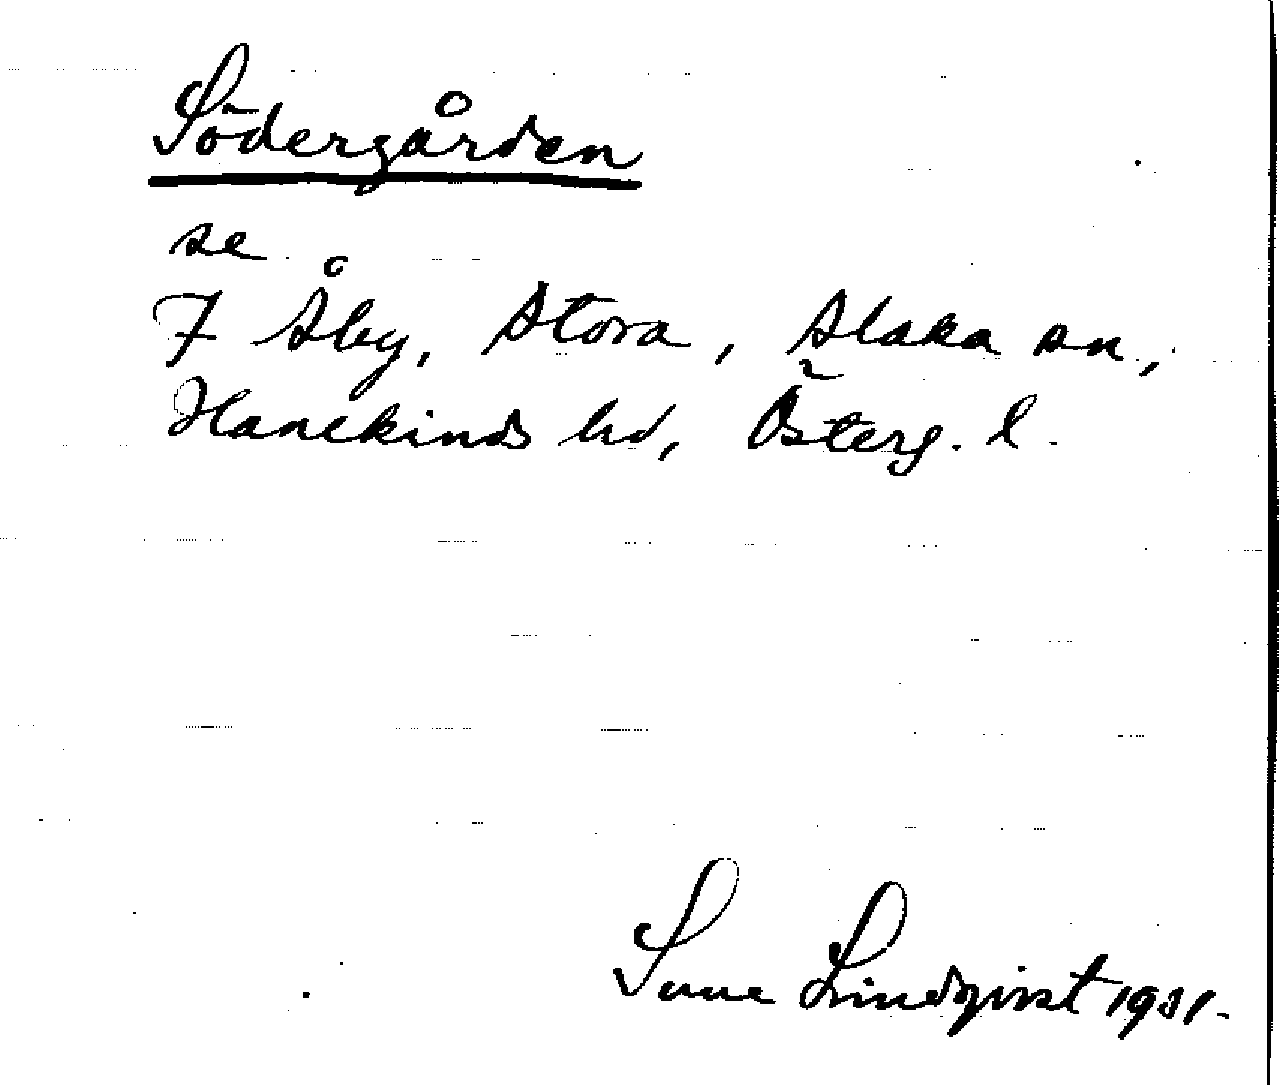 Södergården
se
7 Åby, Stora, Slaka sn,
Hanekinds hd, Österg. l.
Sune Lindqvist 1931.